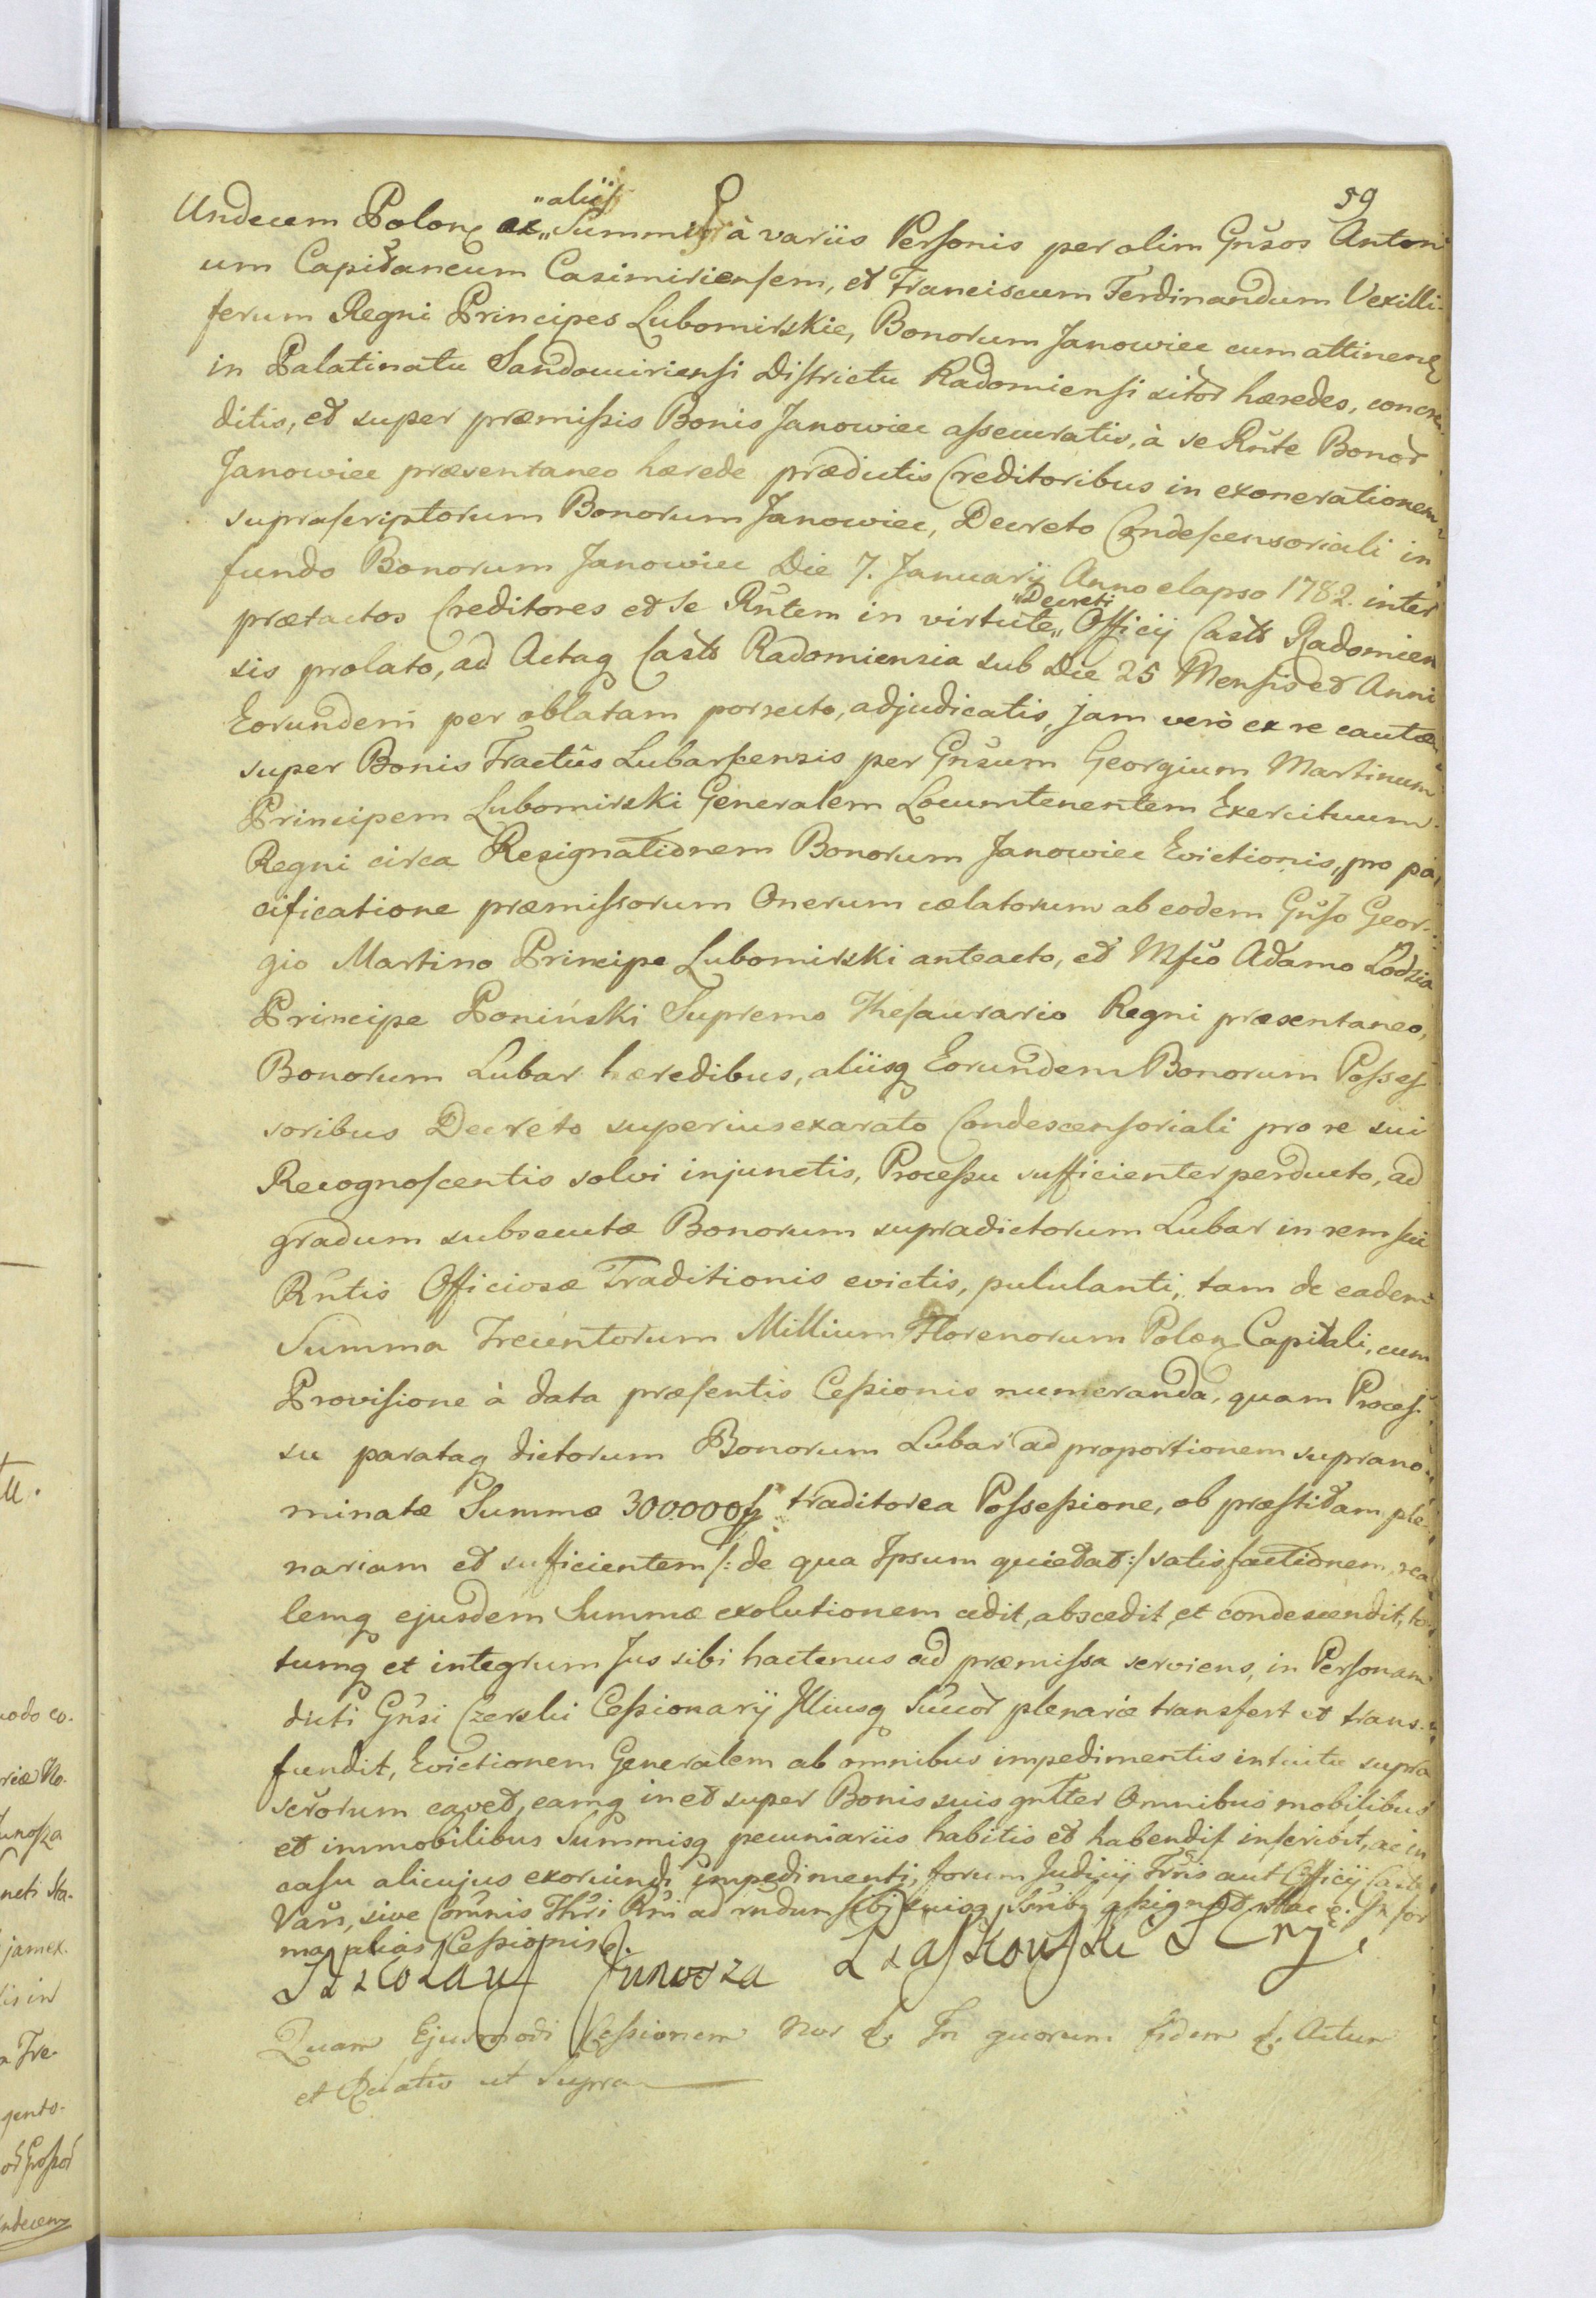 59
Undecem Polon ex „aliis„ Summis à variis Personis per olim Gnsos Antoni
um Capitaneum Casimiriensem, et Franciscum Ferdinandum Vexilli-
ferum Regni Principes Lubomirskie, Bonorum Janowiec cum attinen
in Palatinatu Sandomiriensi Districtu Radomiensi sitor hæredes, concre-
ditis, et super præmissis Bonis Janowiec assecuratis, à se Rnte Bonor
Janowiec præsentaneo hærede prædictis Creditoribus in exonerationem
suprascriptorum Bonorum Janowiec, Decreto Condescensoriali in
fundo Bonorum Janowiec Die 7. Januarij Anno elapso 1782. inter
prætactos Creditores et Se Rntem in virtute „Decreti„ Officij Castr Radomien
sis prolato, ad Actaq Castr Radomiensia sub Die 25 Mensis et Anni
Eorundem per oblatam porrecto, adjudicatis, jam verò ex re cautæ
super Bonis Tractûs Lubarscensis per Gnsum Georgium Martinum
Principem Lubomirski Generalem Locumtenentem Exercituum
Regni circa Resignationem Bonorum Janowiec Evictionis, pro pa-
cificatione præmissorum Onerum cælatorum ab eodem Gnso Geor-
gio Martino Principe Lubomirski anteacto, et Mfco Adamo Lodzia
Principe Poniński Supremo Thesaurario Regni præsentaneo,
Bonorum Lubar hæredibus, aliisq Eorundem Bonorum Posses
soribus Decreto superius exarato Condescensoriali pro re sui
Recognoscentis solvi injunctis, Processu sufficienter perducto, ad
gradum subsecutæ Bonorum supradictorum Lubar in rem sui
Rntis Officiosæ Traditionis evictis, pululanti, tam de eadem
Summa Trecentorum Millium Florenorum Polon Capitali, cum
Provisione à data præsentis Cessionis numeranda, quam Proces-
su parataq dictorum Bonorum Lubar ad proportionem suprano-
minatæ Summæ 300000 f traditorea Possessione, ob præstitam ple-
nariam et sufficientem /: de qua Ipsum quietat :/ satisfactionem, rea
lemq ejusdem Summæ exolutionem cedit, abscedit, et condescendit, to-
tumq et integrum Jus sibi hactenus ad præmissa serviens, in Personam
dicti Gnsi Czerski Cessionarij Illiusq Succor plenarie transfert et trans-
fundit, Evictionem Generalem ab omnibus impedimentis intuitu supra
sctorum cavet, eamq in et super Bonis suis gntter Omnibus mobilibus
et immobilibus Summisq pecuniariis habitis et habendis inscribit, ac in
casu alicujus exoriundi impedimenti, forum Judicij Trnis aut Officij Castr
Varr, sive Comnis Thri Rni ad rndum sibi suisq Ssribq assignat. In for
ma alias Cessionis.
Junosza Laskouski
Quam Ejusmodi Cessionem Nos &. In quorum fidem &. Actum
et Datis ut Supra